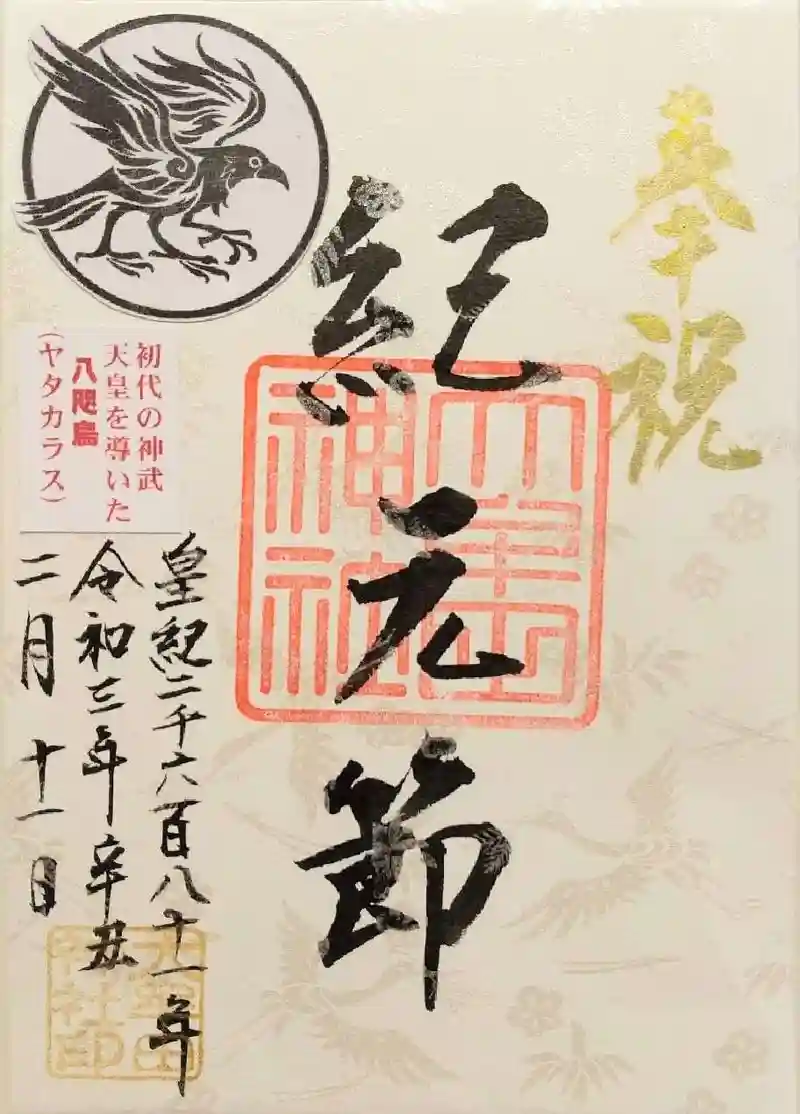 奉祝
紀元節
神社
初代の神武
天皇を導いた
八咫烏
(ヤタカラス)
皇紀二千六百八十一年
令和三年辛丑
二月十一日
神社印